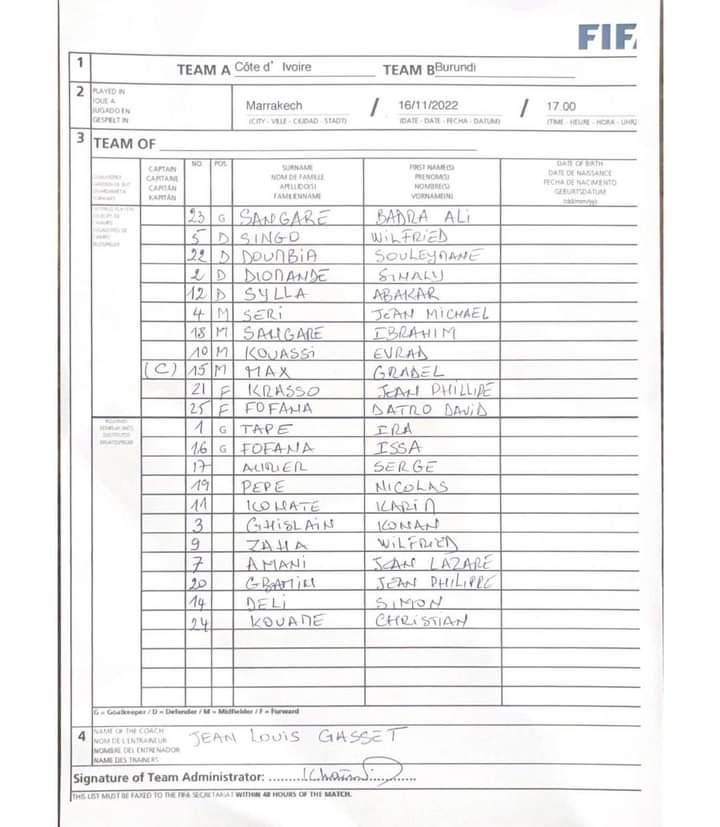 FIFA
1 TEAM A Côte d' Ivoire TEAM B Burundi
2 PLAYED IN Marrakech / 16/11/2022 / 17.00
JOUE A (CITY - VILLE - CIUDAD - STADT) (DATE - DATE - FECHA - DATUM) (TIME - HEURE - HORA - UHR)
JUGADO EN
GESPIELT IN
3 TEAM OF
CAPTAIN NO. POS. SURNAME FIRST NAME(S) DATE OF BIRTH
CAPITAINE NOM DE FAMILLE PRENOM(S) DATE DE NAISSANCE
CAPITÁN APELLIDO(S) NOMBRE(S) FECHA DE NACIMIENTO
KAPITÄN FAMILIENNAME VORNAME(N) GEBURTSDATUM
(dd/mm/yy)
23 G SANGARE BADRA ALI
5 D SINGO WILFRIED
22 D DOUMBIA SOULEYMANE
2 D DIOMANDE SINALY
12 D SYLLA ABAKAR
4 M SERI JEAN MICHAEL
18 M SANGARE IBRAHIM
10 M KOUASSI EVRAD
(C) 15 M MAX GRADEL
21 F KRASSO JEAN PHILLIPE
25 F FOFANA DATRO DAVID
1 G TAPE IRA
16 G FOFANA ISSA
17 AURIER SERGE
19 PEPE NICOLAS
11 KONATE KARIM
3 GHISLAIN KONAN
9 ZAHA WILFRIED
7 AMANI JEAN LAZARE
20 GBAMIN JEAN PHILIPPE
14 DELI SIMON
24 KOUAME CHRISTIAN
G = Goalkeeper / D = Defender / M = Midfielder / F = Forward
4 NAME OF THE COACH JEAN LOUIS GASSET
NOM DE L'ENTRAINEUR
NOMBRE DEL ENTRENADOR
NAME DES TRAINERS
Signature of Team Administrator:
THIS LIST MUST BE FAXED TO THE FIFA SECRETARIAT WITHIN 48 HOURS OF THE MATCH.